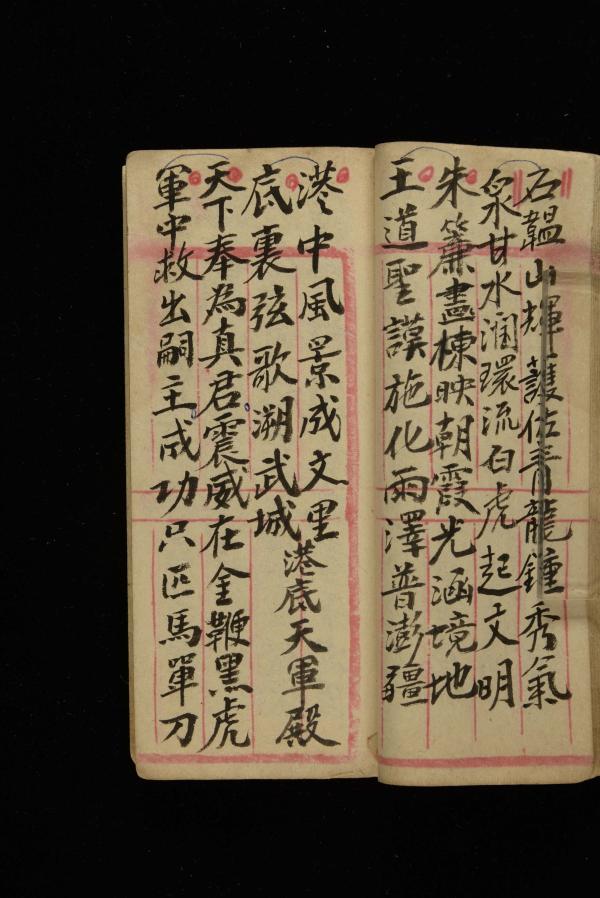 石韞山輝護佐青龍鍾秀氣
泉甘水潤環流白虎起文明
朱簾畫棟映朝霞光涵境地
王道聖謨施化雨澤普澎疆
港中風景成文里
底裏弦歌溯武城
港底天軍殿
天下奉為真君震威在金鞭黑虎
軍中救出嗣主成功只匹馬單刀